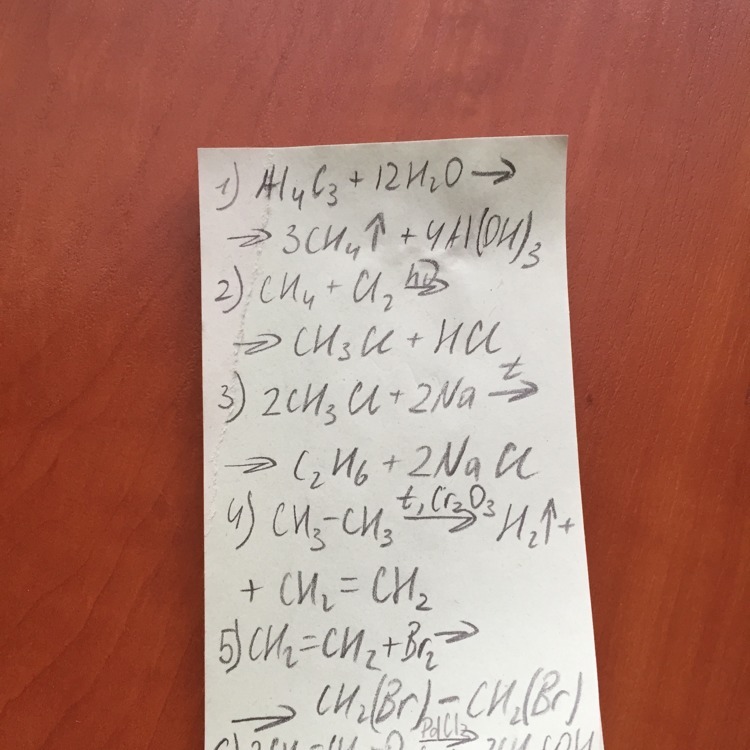 1) Al₄C₃ + 12H₂O →
→ 3CH₄↑ + 4Al(OH)₃
2) CH₄ + Cl₂ hν→
→ CH₃Cl + HCl
3) 2CH₃Cl + 2Na t→
→ C₂H₆ + 2NaCl
4) CH₃-CH₃ t, Cr₂O₃→ H₂↑ +
+ CH₂=CH₂
5) CH₂=CH₂ + Br₂ →
→ CH₂(Br) - CH₂(Br)
PdCl₂→